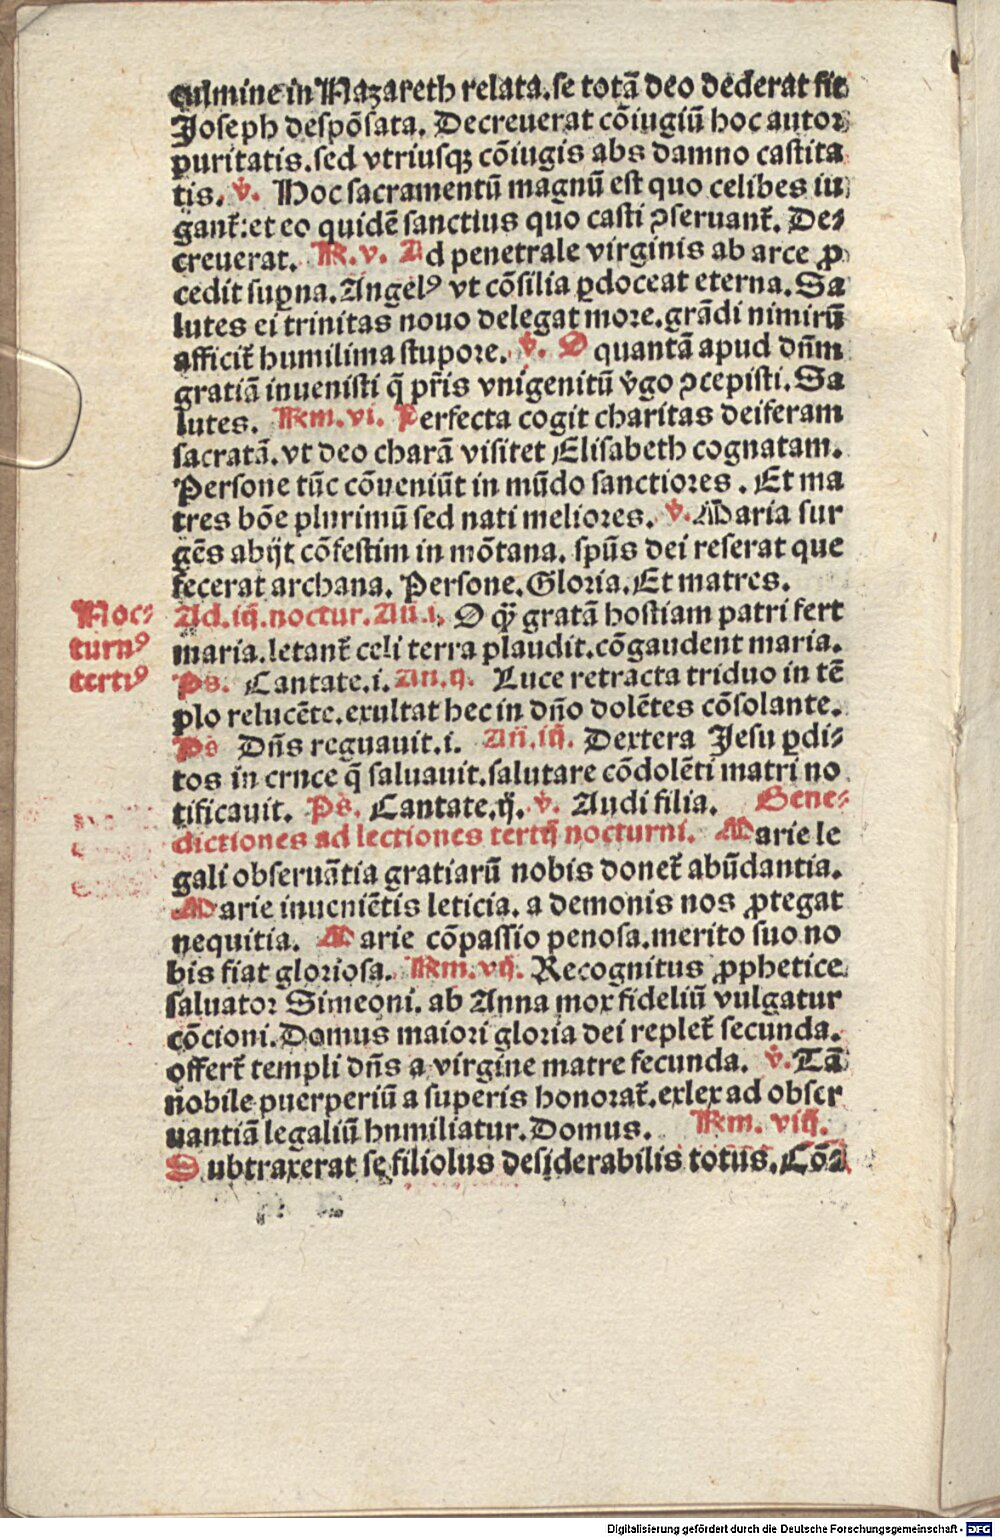 culmine in Nazareth relata.se totā deo dederat fit
Joseph despōsata. Decreuerat cōiugiū hoc autor
puritatis.sed vtriusqꝫ cōiugis abs damno castita
tis. v̇. Hoc sacramentū magnū est quo celibes iu
gant᷑:et eo quidē sanctius quo casti ꝯseruant᷑. De⸗
creuerat. R.v. Ad penetrale virginis ab arce ꝓ
cedit suꝑna. Angelꝰ vt cōsilia ꝑdoceat eterna. Sa
lutes ei trinitas nouo delegat more.grādi nimirū
afficit᷑ humilima stupore. v̇. O quantā apud dn̄m
gratiā inuenisti q̄ pr̄is vnigenitū v̇go ꝯcepisti. Sa
lutes. Rm.vi. Perfecta cogit charitas deiferam
sacratā.vt deo charā visitet Elisabeth cognatam.
Persone tūc cōueniūt in mūdo sanctiores. Et ma
tres bōe plurimū sed nati meliores. v̇. Maria sur
gēs abijt cōfestim in mōtana. spūs dei reserat que
fecerat archana. Persone. Gloria. Et matres.
Noc⸗
turnꝰ
tertiꝰ
Ad.iij.noctur.An̄.i. O qꝫ gratā hostiam patri fert
maria.letant᷑ celi terra plaudit.cōgaudent maria.
Ps. Cantate.i. An.ij. Luce retracta triduo in tē
plo relucēte.exultat hec in dn̄o dolētes cōsolante.
Ps Dn̄s regnauit.i. An̄.iij. Dextera Jesu ꝑdi⸗
tos in crnce q̄ saluauit.salutare cōdolēti matri no
tificauit. Ps. Cantate.ij. v̇. Audi filia. Bene⸗
dictiones ad lectiones tertij nocturni. Marie le
gali obseruātia gratiarū nobis donet᷑ abūdantia.
Marie inueniētis leticia. a demonis nos ꝓtegat
nequitia. Marie cōpassio penosa.merito suo no
bis fiat gloriosa. Rm.vij. Recognitus ꝓphetice
saluator Simeoni. ab Anna mox fideliū vulgatur
cōcioni. Domus maiori gloria dei replet᷑ secunda.
offert᷑ templi dn̄s a virgine matre fecunda. v̇. Tā
nobile puerperiū a superis honorat᷑.exlex ad obser
uantiā legaliū hnmiliatur. Domus. Rm. viij.
Subtraxerat se filiolus desiderabilis totus. Cō⸗
Digitalisierung gefördert durch die Deutsche Forschungsgemeinschaft - DFG